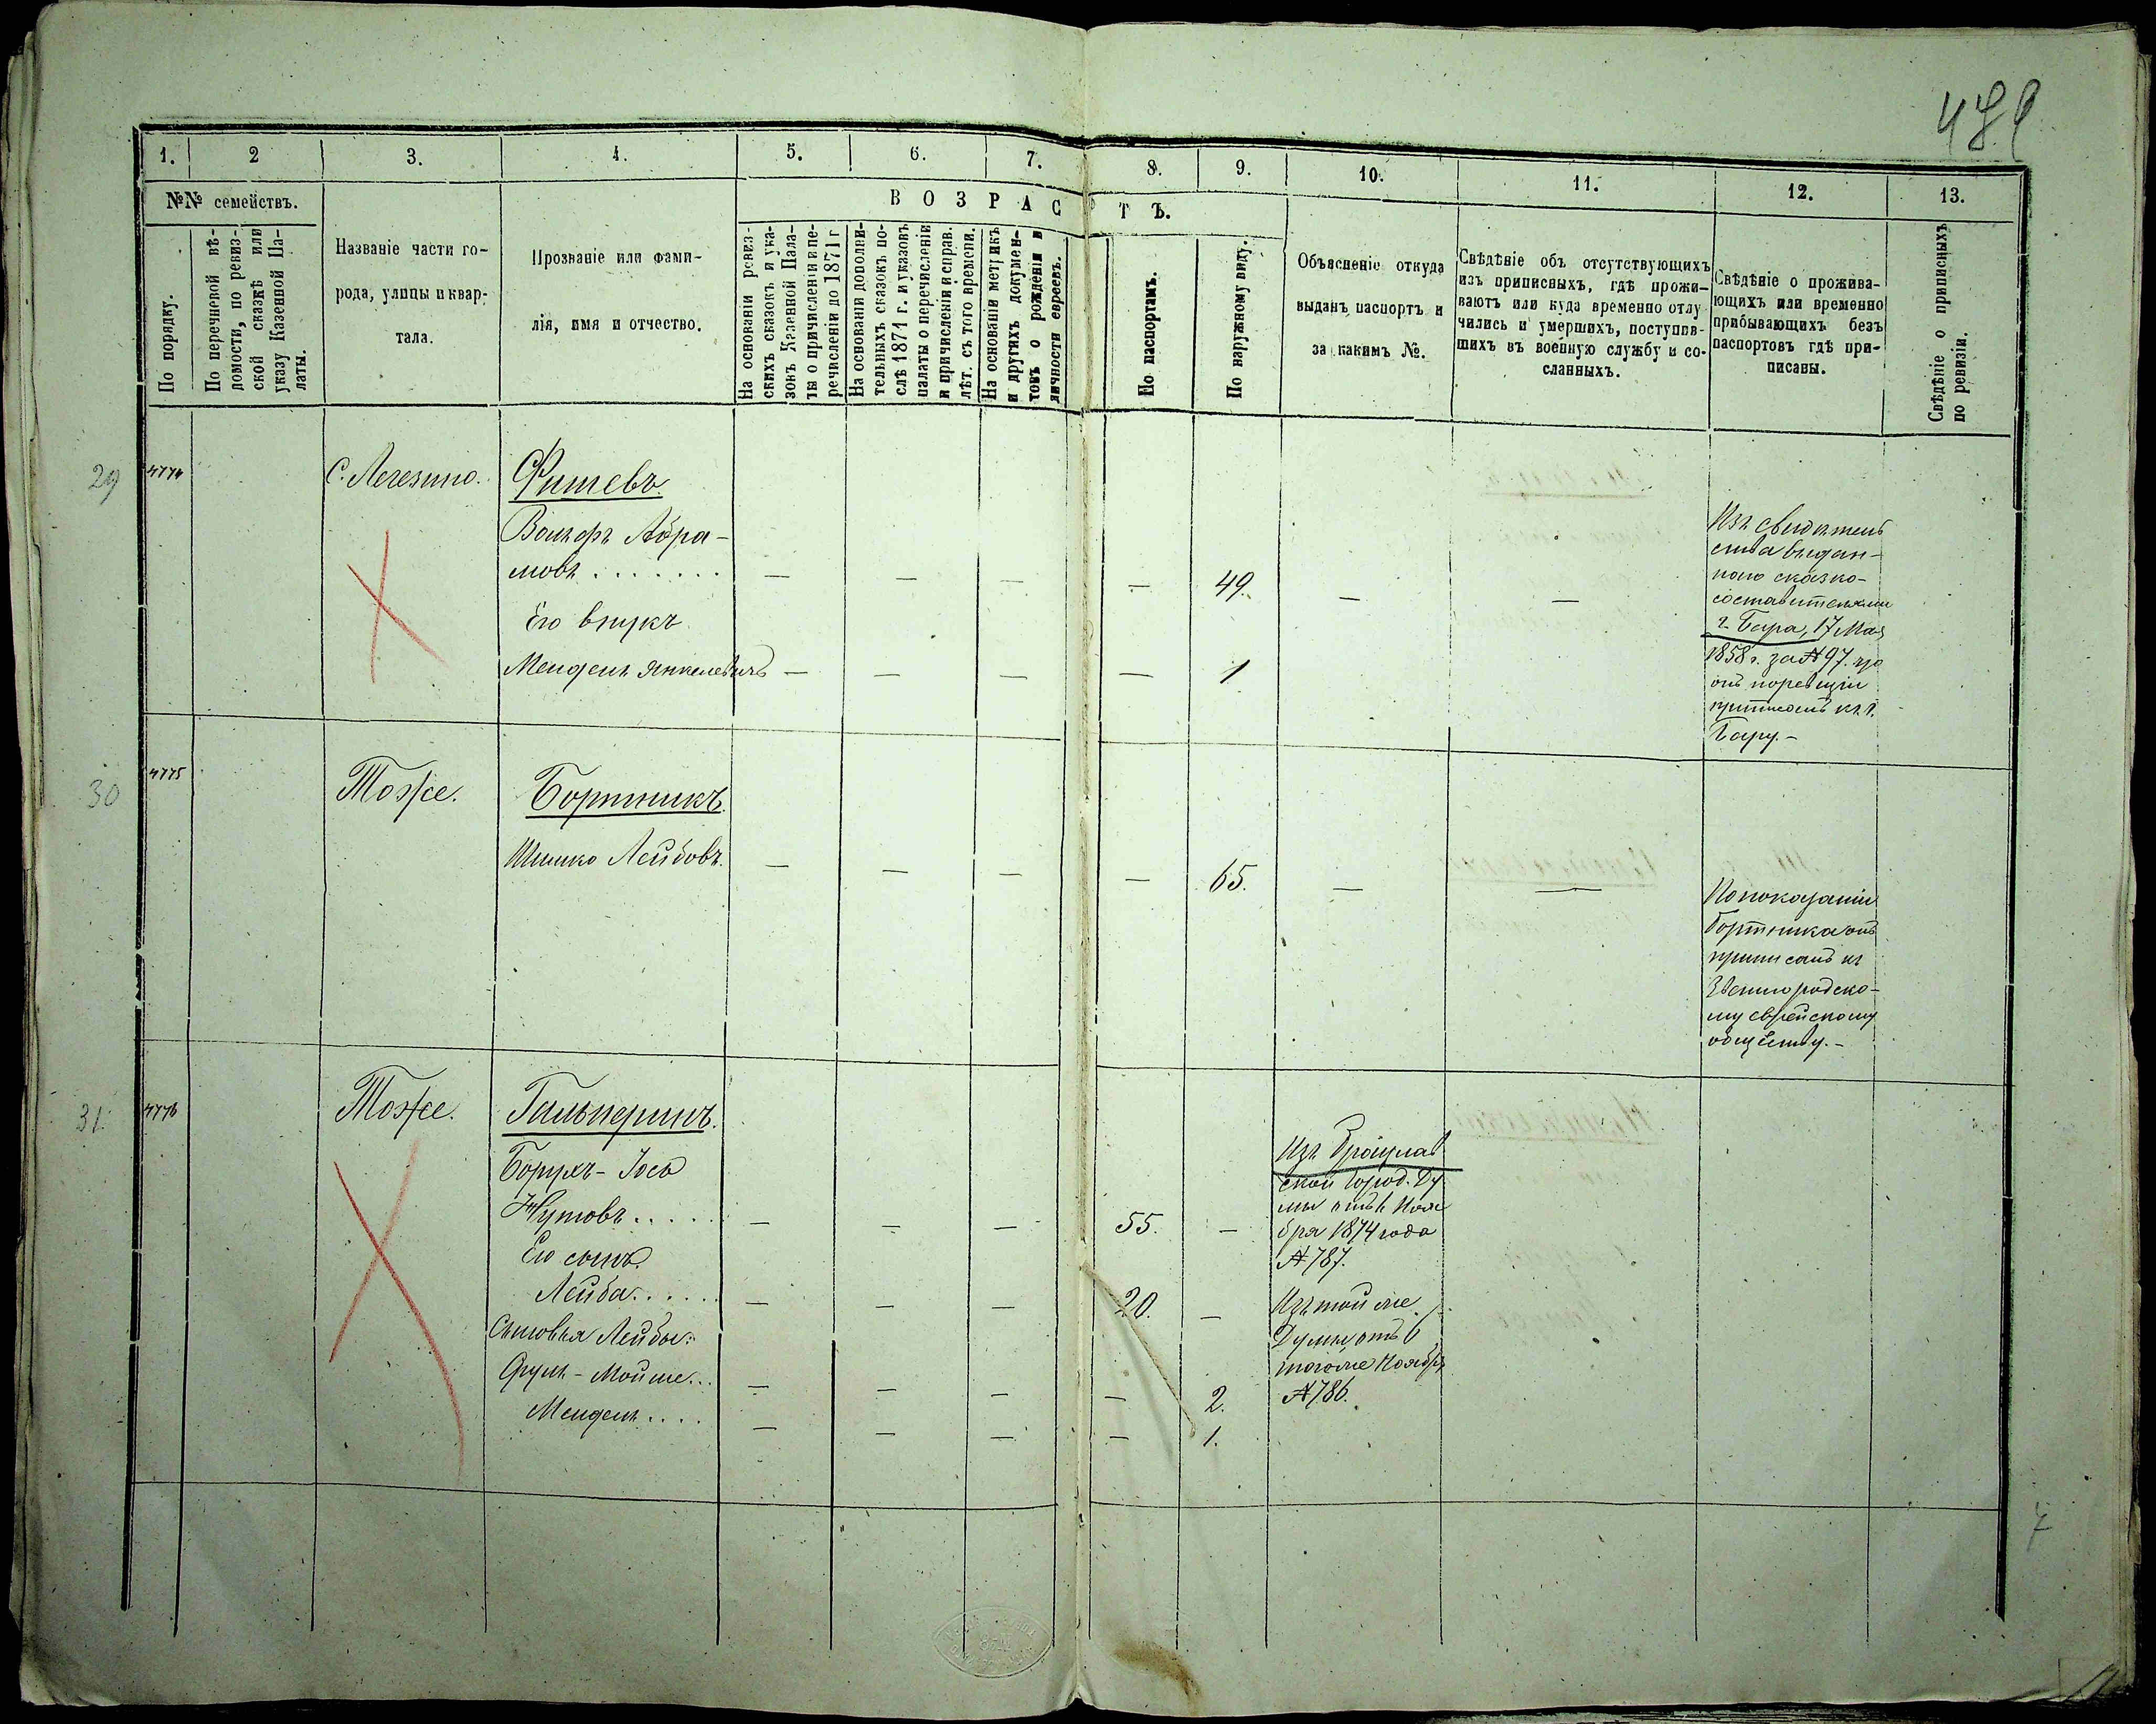 489
1. 2 3. 4. 5. 6. 7. 8. 9. 10. 11. 12. 13.
№№ семействъ.
По порядку.
По перечневой вѣ-
домости, по ревиз-
ской сказкѣ или
указу Казенной Па-
латы.
Названіе части го-
рода, улицы и квар-
тала.
Прозваніе или фами-
лія, имя и отчество.
ВОЗРАСТЪ.
На основаніи ревиз-
скихъ сказокъ и ука-
зовъ Казенной Пала-
ты о причисленіи и пе-
речисленіи до 1871 г
На основаніи дополни-
тельныхъ сказокъ по-
слѣ 1871 г. и указовъ
палаты о перечисленіи
и причисленіи и справ.
лѣт. съ того времени.
На основаніи метрикъ
и другихъ докумен-
товъ о рожденіи и
личности евреевъ.
По паспортамъ.
По наружному виду.
Объясненіе откуда
выданъ паспортъ и
за какимъ №.
Свѣдѣніе объ отсутствующихъ
изъ приписныхъ, гдѣ прожи-
ваютъ или куда временно отлу
чились и умершихъ, поступив-
шихъ въ военную службу и со-
сланныхъ.
Свѣдѣніе о прожива-
ющихъ или временно
прибывающихъ безъ
паспортовъ гдѣ при-
писаны.
Свѣдѣніе о приписныхъ
по ревизіи.
29 4774 С. Легезино. Фишевъ.
Вольфъ Абра-
мовъ . . . . . . . — — — — 49. — —
Его внукъ
Мендель Янкелевичъ — — — — 1
Изъ свидѣтель
ства выдан-
наго сказко-
составителями
г. Бара, 17 Мая
1858 г. за № 97. что
онъ по ревизіи
приписанъ къ г.
Бару. —
30 4775 Тоже. Бортникъ.
Шишко Лейбовъ. — — — — 65. — —
По показанію
Бортника онъ
приписанъ къ
Звенигородско-
му еврейскому
обществу. —
31. 4776 Тоже. Гальперинъ.
Борухъ - Іось
Нутовъ . . . . . — — — 55. —
Его сынъ
Лейба. . . . . . — — — 20. —
Сыновья Лейбы:
Сруль - Мойше. . . — — — — 2.
Мендель . . . . — — — — 1.
Изъ Брацлав
ской Город. Ду
мы отъ 6 Нояб
бря 1874 года
№ 787.
Изъ той же
Думы отъ 6
того же Ноября
№ 786.